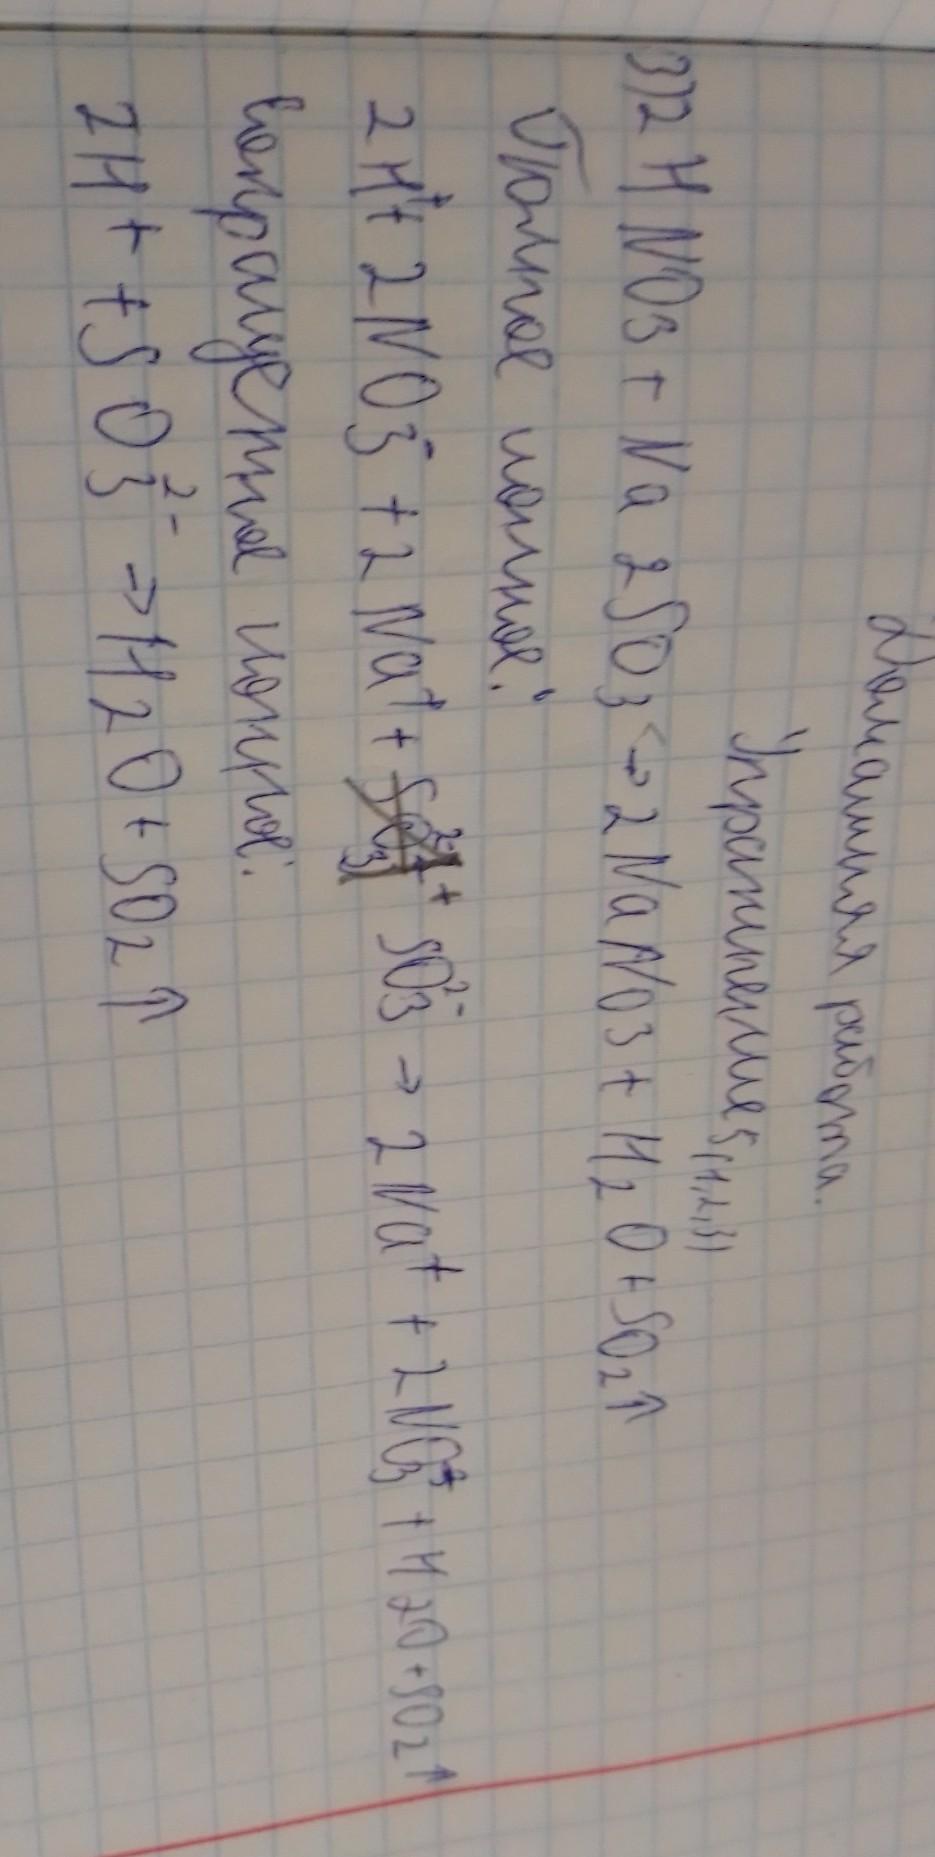 Домашняя работа.
Упражнение 5(1,2,3)
3) 2HNO3 + Na2SO3 <-> 2NaNO3 + H2O + SO2↑
Полное ионное:
2H⁺ + 2NO3⁻ + 2Na⁺ + SO3²⁻ → 2Na⁺ + 2NO3⁻ + H2O + SO2↑
Сокращенное ионное:
2H+ + SO3²⁻ → H2O + SO2↑